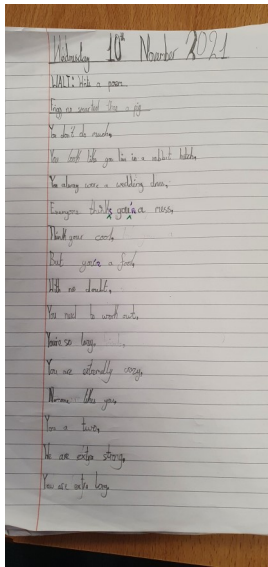 Wednesday 10th November 2021
WALT: Write a poem.
You don't do much,
You look like you live in a rabbit hutch,
You always wear a wedding dress,
Everyone thinks you're a mess,
Think your cool,
But you're a fool,
With no doubt,
You need to work out,
You're so lazy,
You are extremely crazy,
No-one likes you,
You a two,
We are extra strong,
You are extra long,